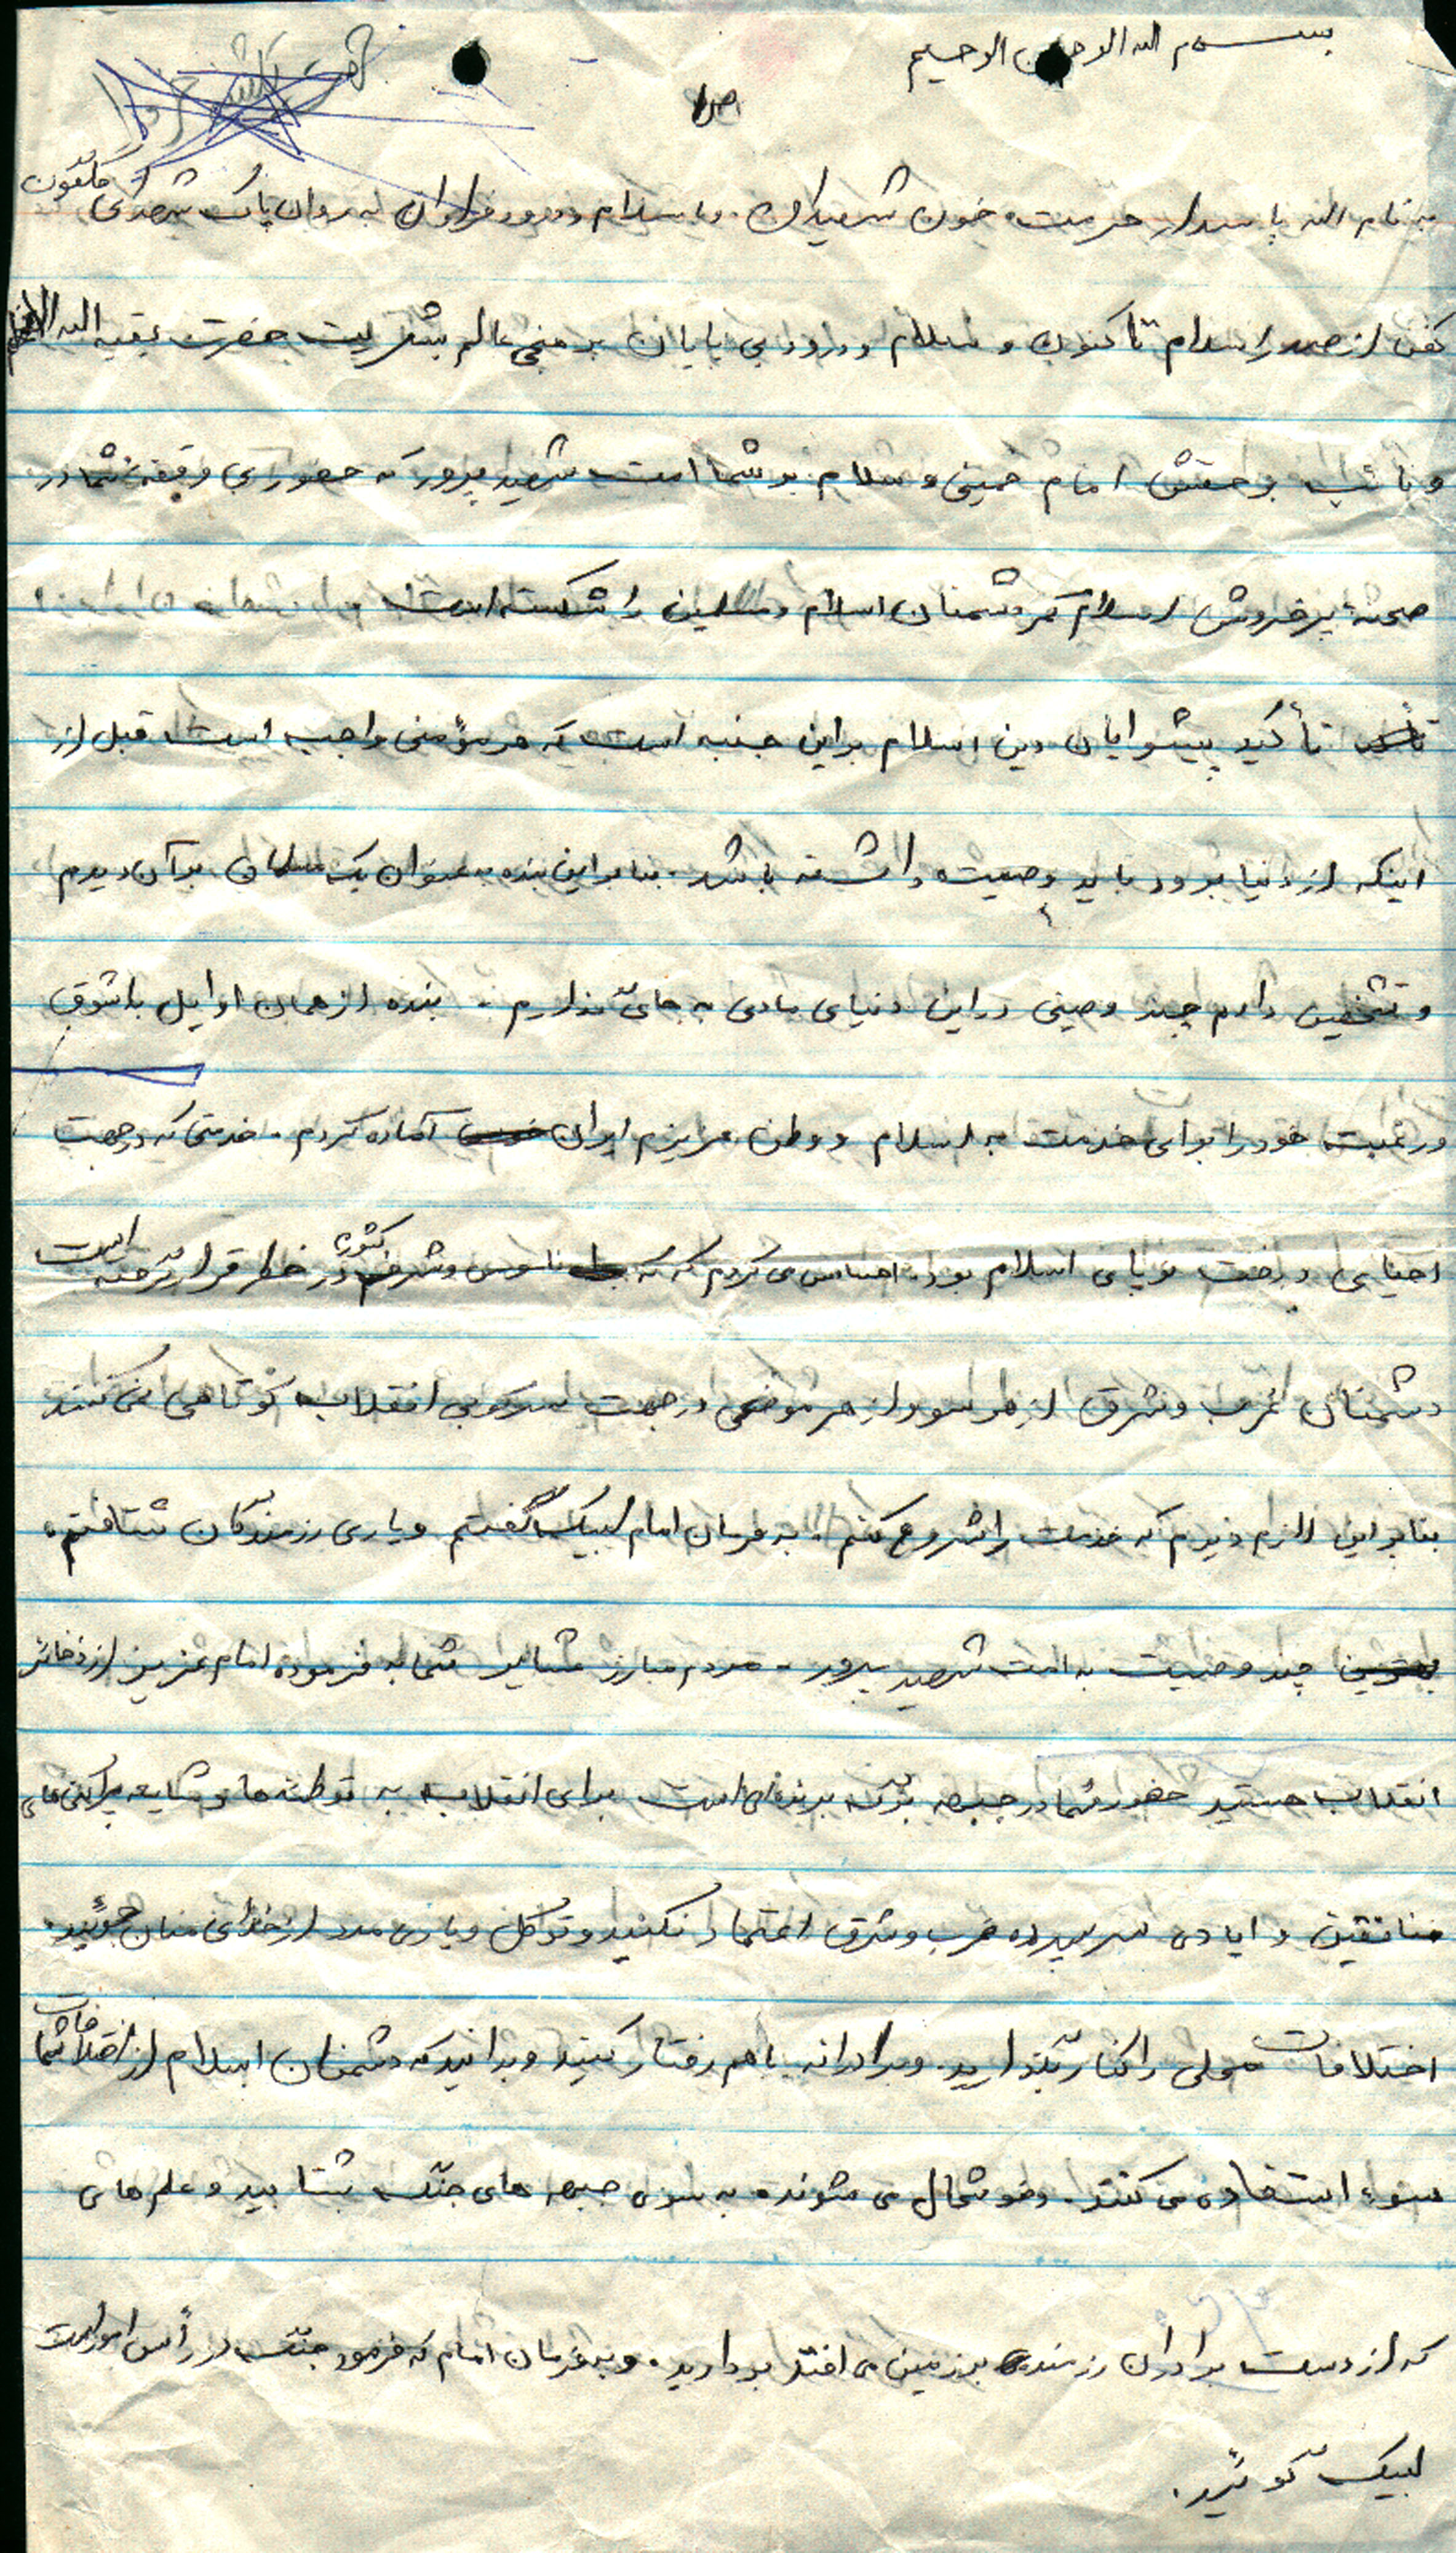 بسم الله الرحمن الرحیم
ص ۱
به نام الله پاسدار حرمت خون شهیدان. با سلام و درود فراوان به روان پاک شهدای گلگون
کفن از صدر اسلام تا کنون و سلام و درود بی پایان بر منجی عالم بشریت حضرت بقیه الله الاعظم
و نائب بر حقش امام خمینی و سلام بر شما امت شهید پرور که حضور بی وقفه شما در
صحنه پرخروش اسلام کمر دشمنان اسلام و مسلمین را شکسته است
تأکید پیشوایان دین اسلام براین جنبه است که هر مؤمنی واجب است قبل از
اینکه از دنیا برود باید وصیت داشته باشد. بنابراین بنده به عنوان یک مسلمان برآن دیدم
و تشخیص دادم چند وصیتی در این دنیای مادی به جای گذارم. بنده از همان اوایل با شوق
و رغبت خود را برای خدمت به اسلام و وطن عزیزم ایران آماده کردم. خدمتی که در جهت
احیایی درخت نوپای اسلام بود. احساس می کردم که که ناموس و شرف کشورم در خطر قرار گرفته است
دشمنان غرب و شرق از هر سو و از هر موضعی در جهت سرکوبی انقلاب کوتاهی نمی کنند
بنابراین لازم دیدم که خدمت را شروع کنم. به فرمان امام لبیک گفتم و یاری رزمندگان شتافتم.
چند وصیت به امت شهید پرور - مردم مبارز عشایر شما به فرموده امام عزیز از ذخائر
انقلاب هستید حضور شما در جبهه برگه برنده‌ای است برای انقلاب به توطئه ها و شایعه پراکنی های
منافقین و ایادی سرسپرده غرب و شرق اعتماد نکنید و توکل و یاری مدد از خدای منان جوئید.
اختلافات محلی را کنار بگذارید. و برادرانه با هم رفتار کنید و بدانید که دشمنان اسلام از اختلافات شما
سوء استفاده می کنند. و خوشحال می شوند. به سوی جبهه های جنگ بشتابید و علم هایی
که از دست برادران رزمنده برزمین می افتد بردارید. و به فرمان امام که فرمود جنگ در رأس امور است
لبیک گوئید.